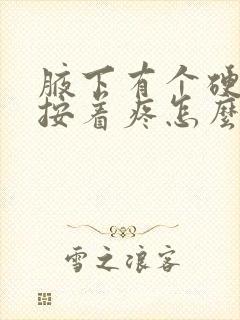 腋下有个硬
按着疼怎麼
雪之浪客